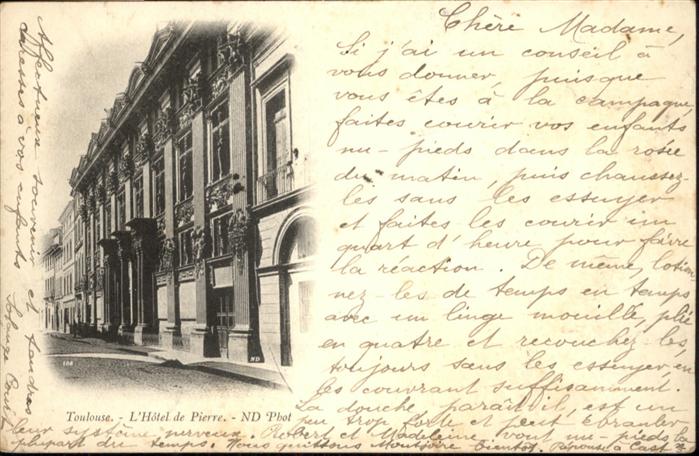 Chère Madame,
Si j'ai un conseil à
vous donner, puisque
vous êtes à la campagne
faites courir vos enfants
nu-pieds dans la rosée
du matin, puis chaussez-
les sans les essuyer
et faites les courir un
quart d'heure pour faire
la réaction. De même, lotion-
nez-les de temps en temps
avec un linge mouillé, plié
en quatre et recouchez-les,
toujours sans les essuyer, en
les couvrant suffisamment.
La douche, paraît-il, est un
peu trop forte et peut ébranler
leur système nerveux. Robert et Madeleine vont nu-pieds la
plupart du temps. Nous quittons Montjoire bientôt.
Affectueux souvenir et tendres
caresses à vos enfants
Solange
108
ND
Toulouse. - L'Hôtel de Pierre. - ND Phot